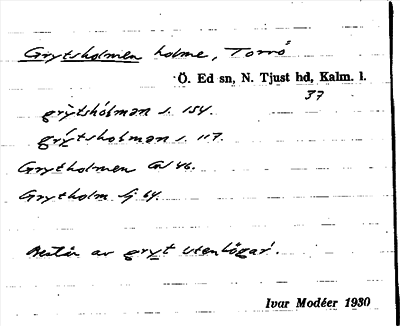 Grytsholmen holme, Torrö
Ö. Ed sn, N. Tjust hd, Kalm. l.
37
grỳtshólmən s. 154.
grýtsholmən s. 117.
Grytholmen GV 46.
Grytholm Sj 64.
Består av gryt utenbögar.
Ivar Modéer 1930